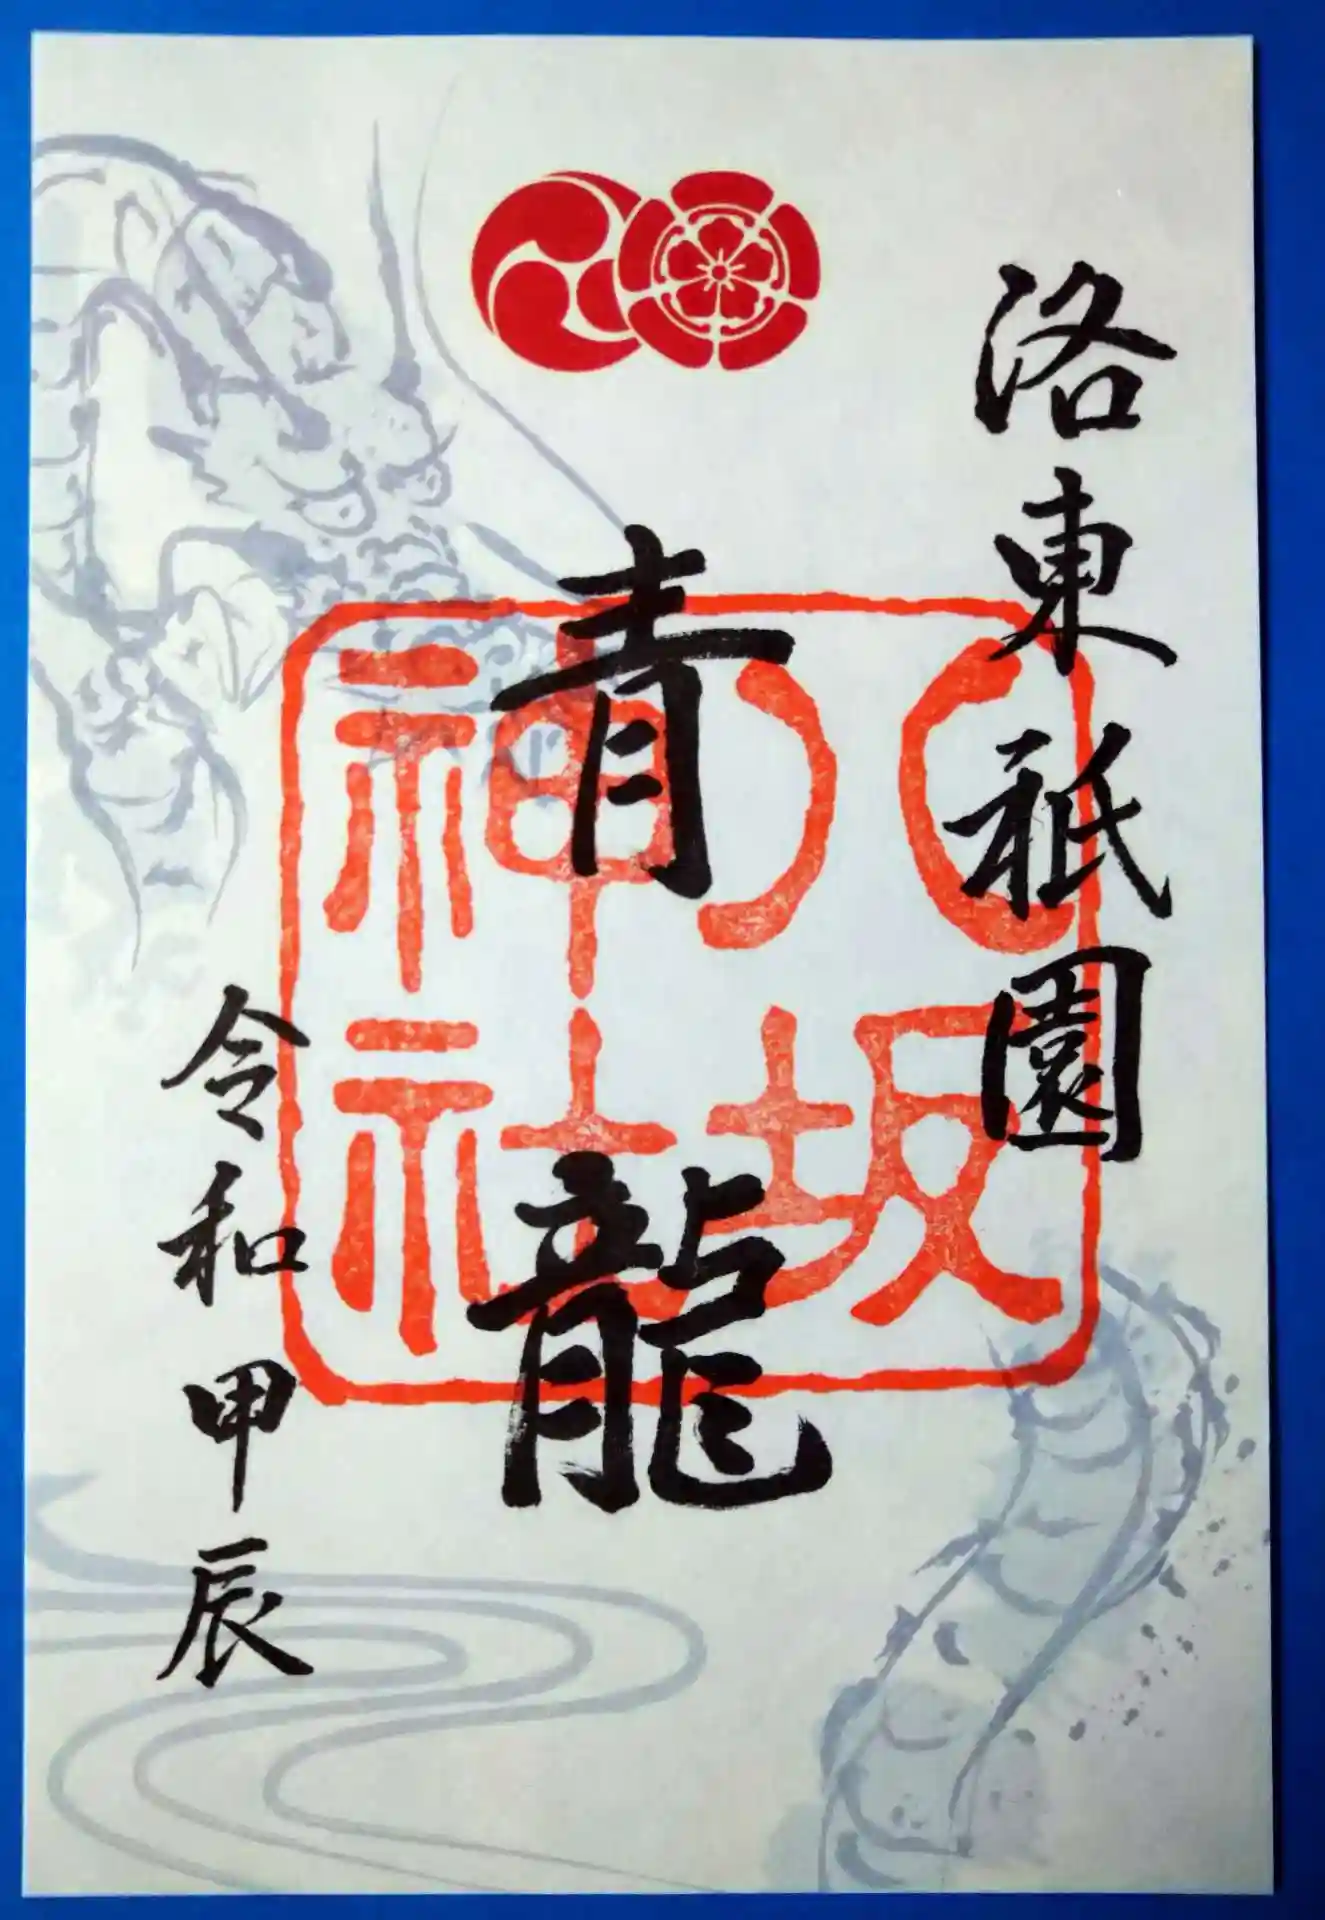 洛東祇園
八坂
神社
青龍
令和甲辰